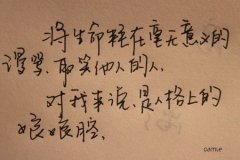 将生命耗在毫无意义的
谩骂、耻笑他人的人.
对我来说.是人格上的
娘娘腔.